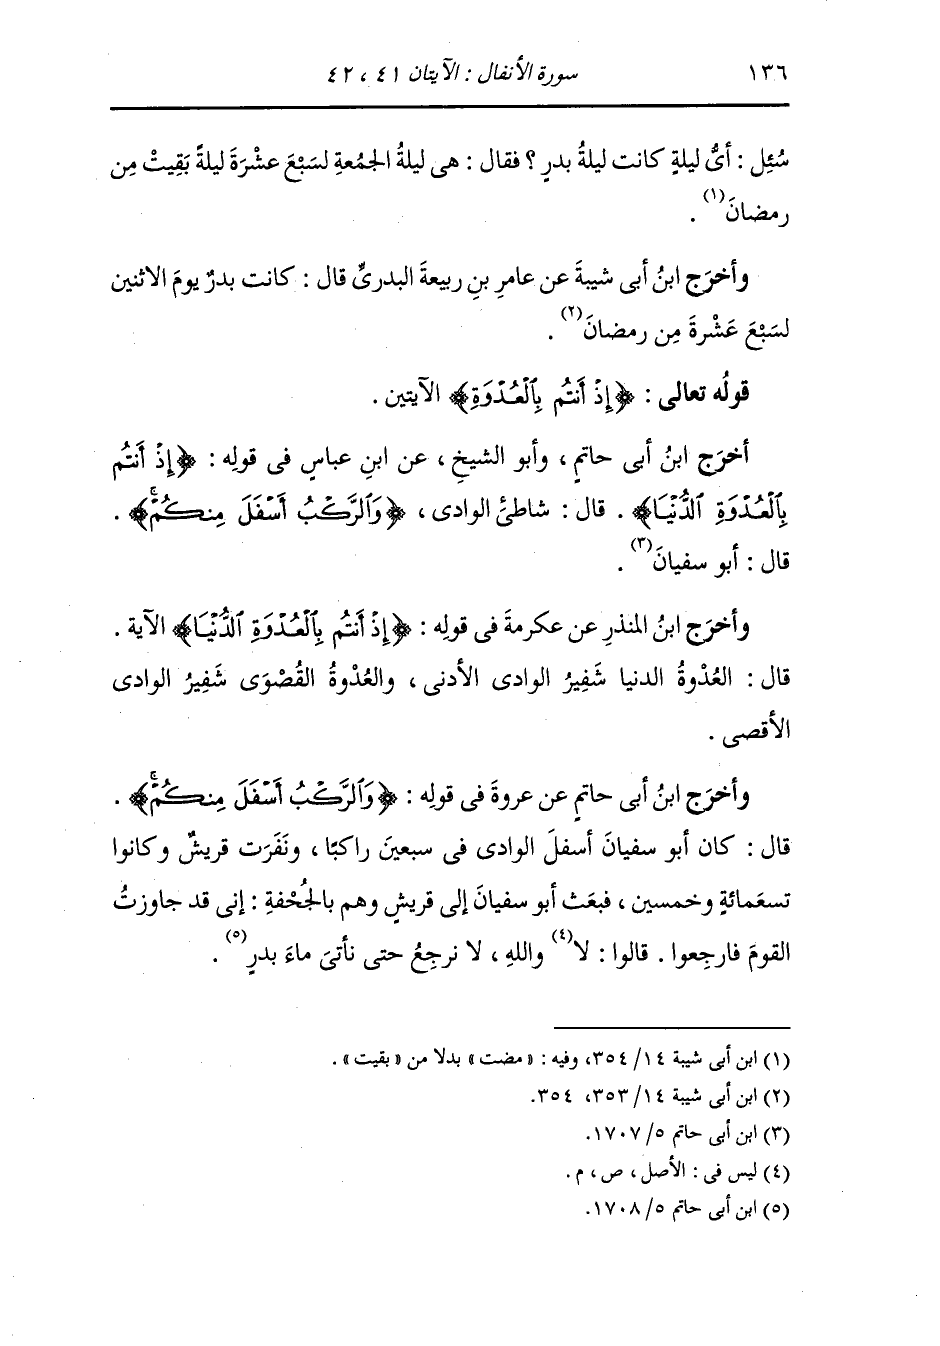 ١٣٦ سورة الأنفال : الآيتان ٤١ ، ٤٢
سُئِل : أىُّ ليلةٍ كانت ليلةُ بدرٍ ؟ فقال : هى ليلةُ الجمُعةِ لسَبْعَ عشْرَةَ ليلةً بَقِيتْ مِن
رمضانَ(١) .
وأخرَج ابنُ أبى شيبةَ عن عامرِ بنِ ربيعةَ البدرىِّ قال : كانت بدرٌ يومَ الاثنين
لسَبْعَ عَشْرةَ مِن رمضانَ(٢) .
قولُه تعالى : ﴿إِذْ أَنتُم بِٱلْعُدْوَةِ﴾ الآيتين .
أخرَج ابنُ أبى حاتمٍ ، وأبو الشيخِ ، عن ابنِ عباسٍ فى قولِه : ﴿إِذْ أَنتُم
بِٱلْعُدْوَةِ ٱلدُّنْيَا﴾ . قال : شاطئُ الوادى ، ﴿وَٱلرَّكْبُ أَسْفَلَ مِنكُمْۚ﴾ .
قال : أبو سفيانَ(٣) .
وأخرَج ابنُ المنذرِ عن عكرمةَ فى قولِه : ﴿إِذْ أَنتُم بِٱلْعُدْوَةِ ٱلدُّنْيَا﴾ الآية .
قال : العُدْوةُ الدنيا شَفِيرُ الوادى الأدنى ، والعُدْوةُ القُصْوَى شَفِيرُ الوادى
الأقصى .
وأخرَج ابنُ أبى حاتمٍ عن عروةَ فى قولِه : ﴿وَٱلرَّكْبُ أَسْفَلَ مِنكُمْۚ﴾ .
قال : كان أبو سفيانَ أسفلَ الوادى فى سبعينَ راكبًا ، ونَفَرَت قريشٌ وكانوا
تسعَمائةٍ وخمسين ، فبعَث أبو سفيانَ إلى قريشٍ وهم بالجُحْفةِ : إنى قد جاوزتُ
القومَ فارجِعوا . قالوا : لا(٤) واللهِ ، لا نرجِعُ حتى نأتىَ ماءَ بدرٍ(٥) .
(١) ابن أبى شيبة ١٤/ ٣٥٤، وفيه : «مضت» بدلا من «بقيت» .
(٢) ابن أبى شيبة ١٤/ ٣٥٣، ٣٥٤.
(٣) ابن أبى حاتم ٥/ ١٧٠٧.
(٤) ليس فى : الأصل ، ص ، م .
(٥) ابن أبى حاتم ٥/ ١٧٠٨.